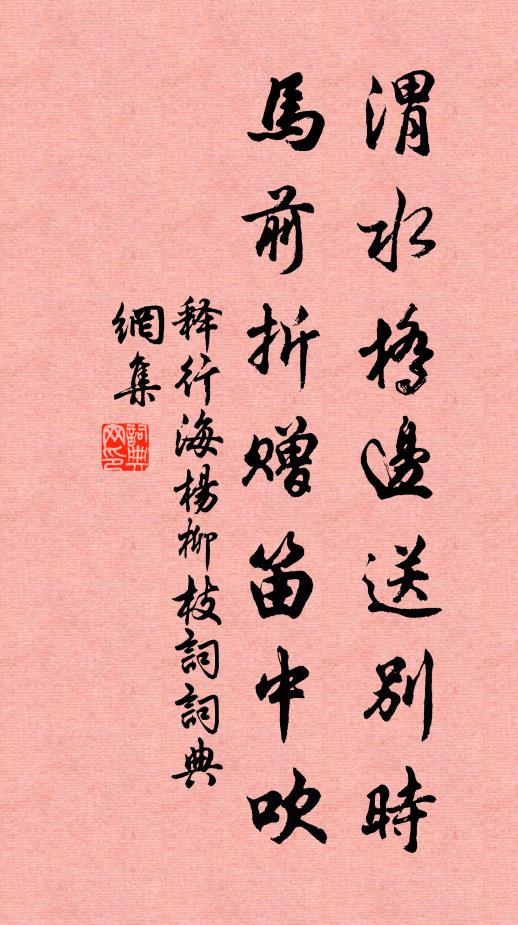 渭水橋邊送別時
馬前折贈笛中吹
释行海楊柳枝詞詞典
網集
詞典
网印